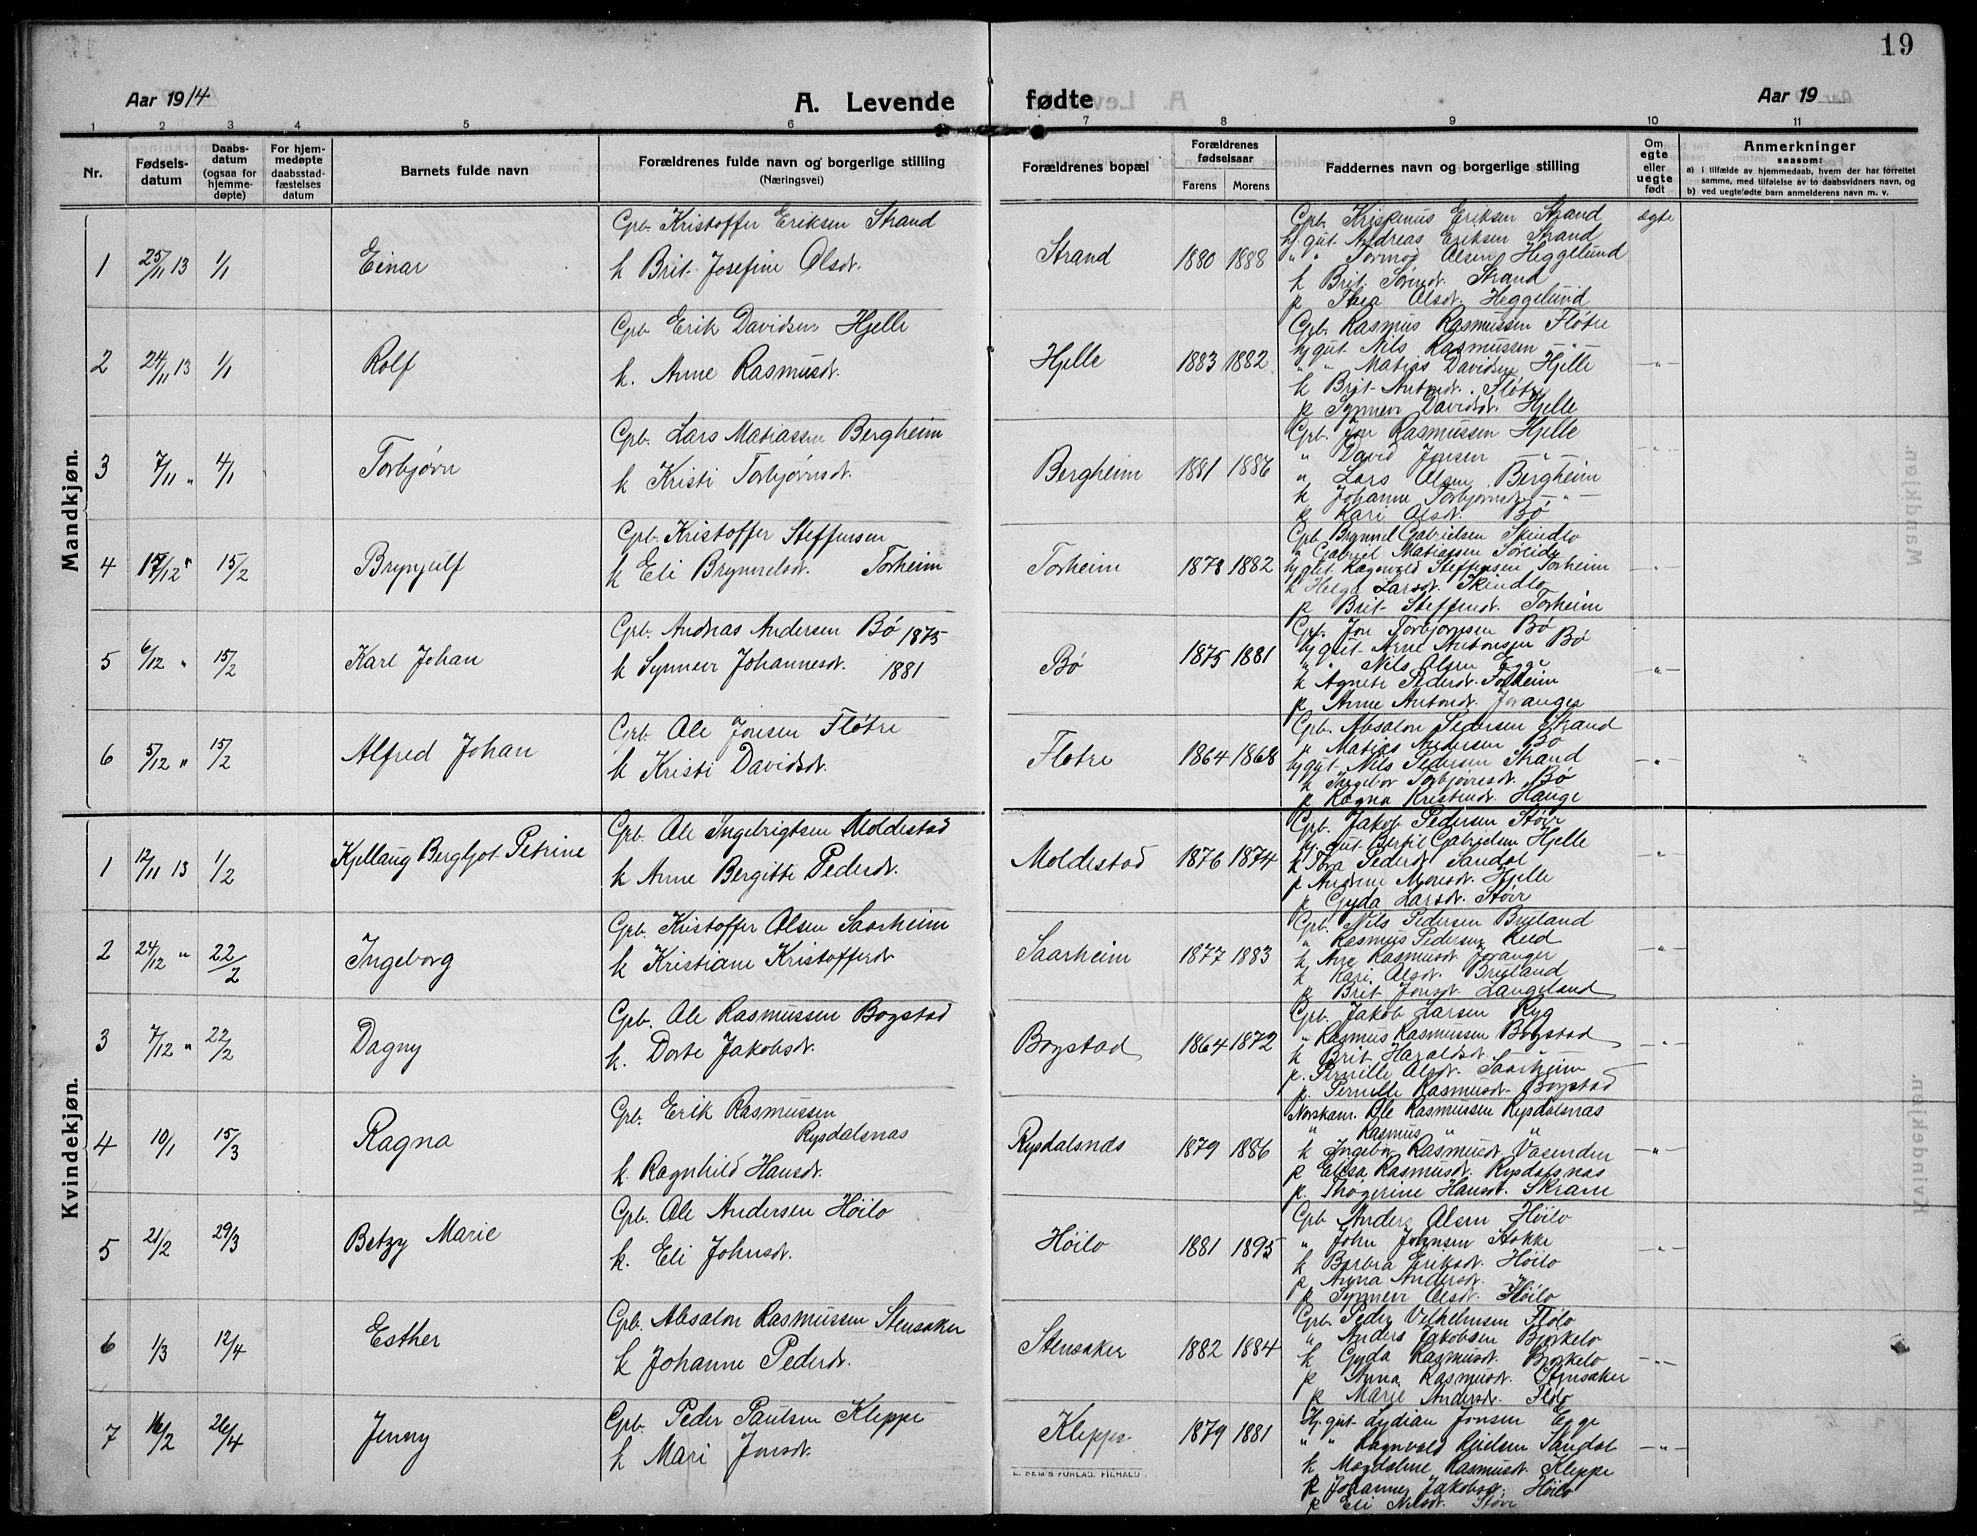 19
Aar 1914
A. Levende fødte
Aar 19
1 2 3 4 5 6 7 8 9 10 11
Nr.
Fødsels-
datum
Daabs-
datum
(ogsaa for
hjemme-
døpte)
For hjem-
medøpte
daabsstad-
fæstelses
datum
Barnets fulde navn
Forældrenes fulde navn og borgerlige stilling
(Næringsvei)
Forældrenes bopæl
Forældrenes
fødselsaar
Farens Morens
Faddernes navn og borgerlige stilling
Om
egte
eller
uegte
født
Anmerkninger
saasom:
a) i tilfælde av hjemmedaab, hvem der har forrettet
samme, med tilføielse av to daabsvidners navn, og
b) ved uegtefødte barn anmelderens navn m. v.
Mandkjøn.
1 25/11 13 1/1 Einar
Grb. Kristoffer Eriksen Strand
k Brit Josefine Olsdt.
Strand 1880 1888
Grb. Eriksen Strand
hj. gut. Andreas Eriksen Strand
" " Tormod Olsen Heggelund
k Brit Strand
p Thea Olsdt. Heggelund
ægte
2 24/11 13 1/1 Rolf
Grb. Erik Davidsen Hjelle
k. Anne Rasmusdt.
Hjelle 1883 1882
Grb. Rasmus Rasmussen Fløtre
hj gut. Nils Rasmussen — " —
" " Matias Davidsen Hjelle
k Brit Antonsdt. Fløtre
p Synnev Davidsdt. Hjelle
— " —
3 7/11 " 4/1 Torbjørn
Grb. Lars Matiassen Bergheim
k Kristi Torbjørnsdt.
Bergheim 1881 1886
Grb. Jon Rasmussen Hjelle
" David Jonsen — " —
" Lars Olsen Bergheim
k Johanne Torbjørnsdt — " —
p Kari Olsdt. Bø
4 17/12 " 15/2 Brynjulf
Grb. Kristoffer Steffensen
k Eli Brynnelsdt. Torheim
Torheim 1873 1882
Grb Brynnel Gabrielsen Skindlo
" Gabriel Matiassen Søreide
hj gut. Ragnvald Steffensen Torheim
k Helga Larsdt. Skindlo
p Brit Steffensdt. Torheim
— " —
5 6/12 " 15/2 Karl Johan
Grb. Andreas Andersen Bø 1875
k Synnev Johannesdt. 1881
Bø 1875 1881
Grb. Jon Torbjørnsen Bø
hj gut. Arne Antonsen Bø
" " Nils Olsen Egge
k Agnete Pedersdt. Torheim
p Anne Antonsdt. Joranger
— " —
6 5/12 " 15/2 Alfred Johan
Grb. Ole Jonsen Fløtre
k Kristi Davidsdt.
Fløtre 1864 1868
Grb. Absalon Pedersen Strand
" Matias Andersen Bø
hj gut. Nils Pedersen Strand
k Ingebor Torbjørnsdt. Bø
p Ragna Kristensdt. Hauge
— " —
Kvindekjøn.
1 12/11 13 1/2 Kjellaug Bergljot Petrine
Grb. Ole Ingebrigtsen Moldestad
k Anne Bergitte Pedersdt.
Moldestad 1876 1874
Grb. Jakob Pedersen Støir
hj. gut Bertil Gabrielsen Hjelle
k Tora Pedersdt Sandal
p Andrine Monsdt. Hjelle
p Gyda Larsdt. Støir
— " —
2 24/12 " 22/2 Ingeborg
Grb. Kristoffer Olsen Saarheim
k Kristiane Kristoffersdt.
Saarheim 1877 1883
Grb. Nils Pedersen Bryland
" Rasmus Pedersen Reed
k Ane Rasmusdt Joranger
k Kari Olsdt. Bryland
p Brit Jonsdt Langeland
— " —
3 7/12 " 22/2 Dagny
Grb. Ole Rasmussen Bogstad
k. Dorte Jakobsdt.
Bogstad 1864 1872
Grb. Jakob Larsen Ryg
" Rasmus Rasmussen Bogstad
k Brit Haraldsdt. "
p. Pernille Olsdt. Saarheim
p. Pernille Rasmusdt. Bogstad
— " —
4 10/1 15/3 Ragna
Grb. Erik Rasmussen
Rysdalsnas
k Ragnhild Hansdt.
Rysdalsnas 1879 1886
Norskam. Ole Rasmussen Rysdalsnas
" Rasmus " "
k Ingebor Rasmusdt Vasenden
p Elisa Rasmusdt. Rysdalsnas
p. Thøgerine Hansdt. Skram
— " —
5 21/2 29/3 Betzy Marie
Grb. Ole Andersen Høilo
k. Eli Johnsdt.
Høilo 1881 1895
Grb Anders Olsen Høilo
" John Johnsen Stokke
k Barbra Eriksdt. Høilo
p Anna Andersdt.
p Synnev Olsdt. Høilo
— " —
6 1/3 12/4 Esther
Grb. Absalon Rasmussen Stensaker
k Johanne Pedersdt.
Stensaker 1882 1884
Grb. Peder Vilhelmsen Flølo
" Anders Jakobsen Bjørkelo
k Gyda Rasmusdt. Bjørkelo
p Anna Rasmusdt. Stensaker
p Marie Andersdt. Flølo
— " —
7 16/2 26/4 Jenny
Grb. Peder Paulsen Kleppe
k Mari Jonsdt.
Kleppe 1879 1881
Hj. gut. Lydian Jonsen Egge
" " Ragnvald Sandal
k Magdalene Rasmusdt Kleppe
p Johanne Jakobsdt. Høilo
p Eli Nilsdt. Støir
— " —
E. SEM'S FORLAG, FR.HALD.